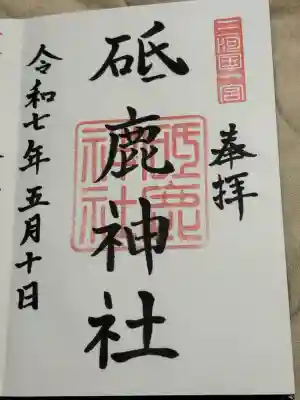 三河国一宮
奉拝
砥鹿神社
砥鹿神社
令和七年五月十日